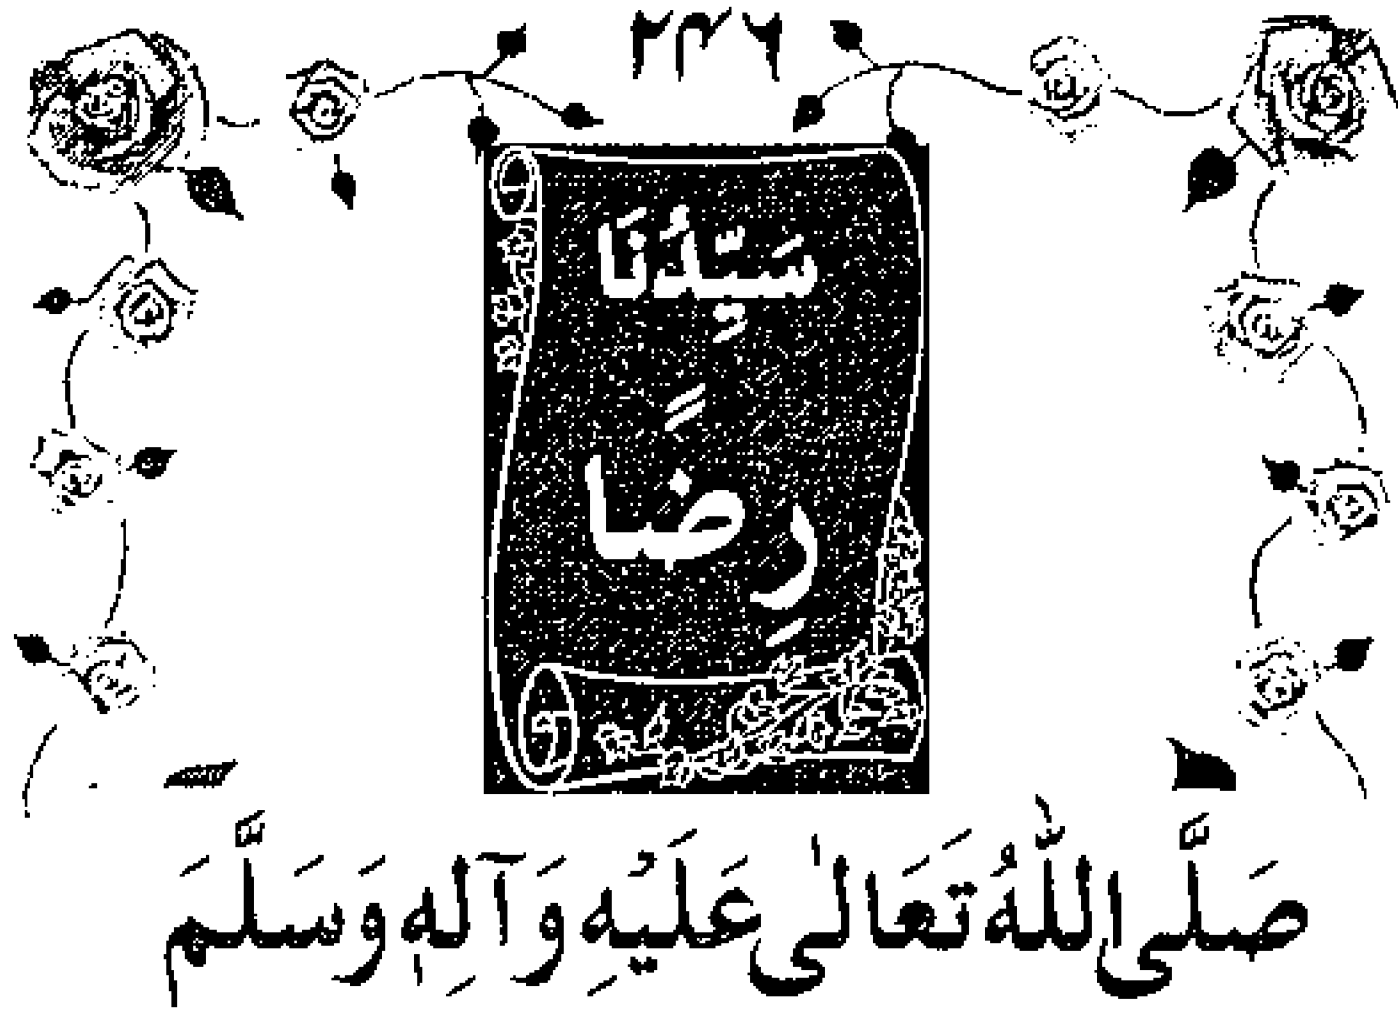 ۲۴۶
سَيِّدُنَا
رِضًا
صَلَّى اللّٰهُ تَعَالٰى عَلَيْهِ وَآلِهٖ وَسَلَّمَ